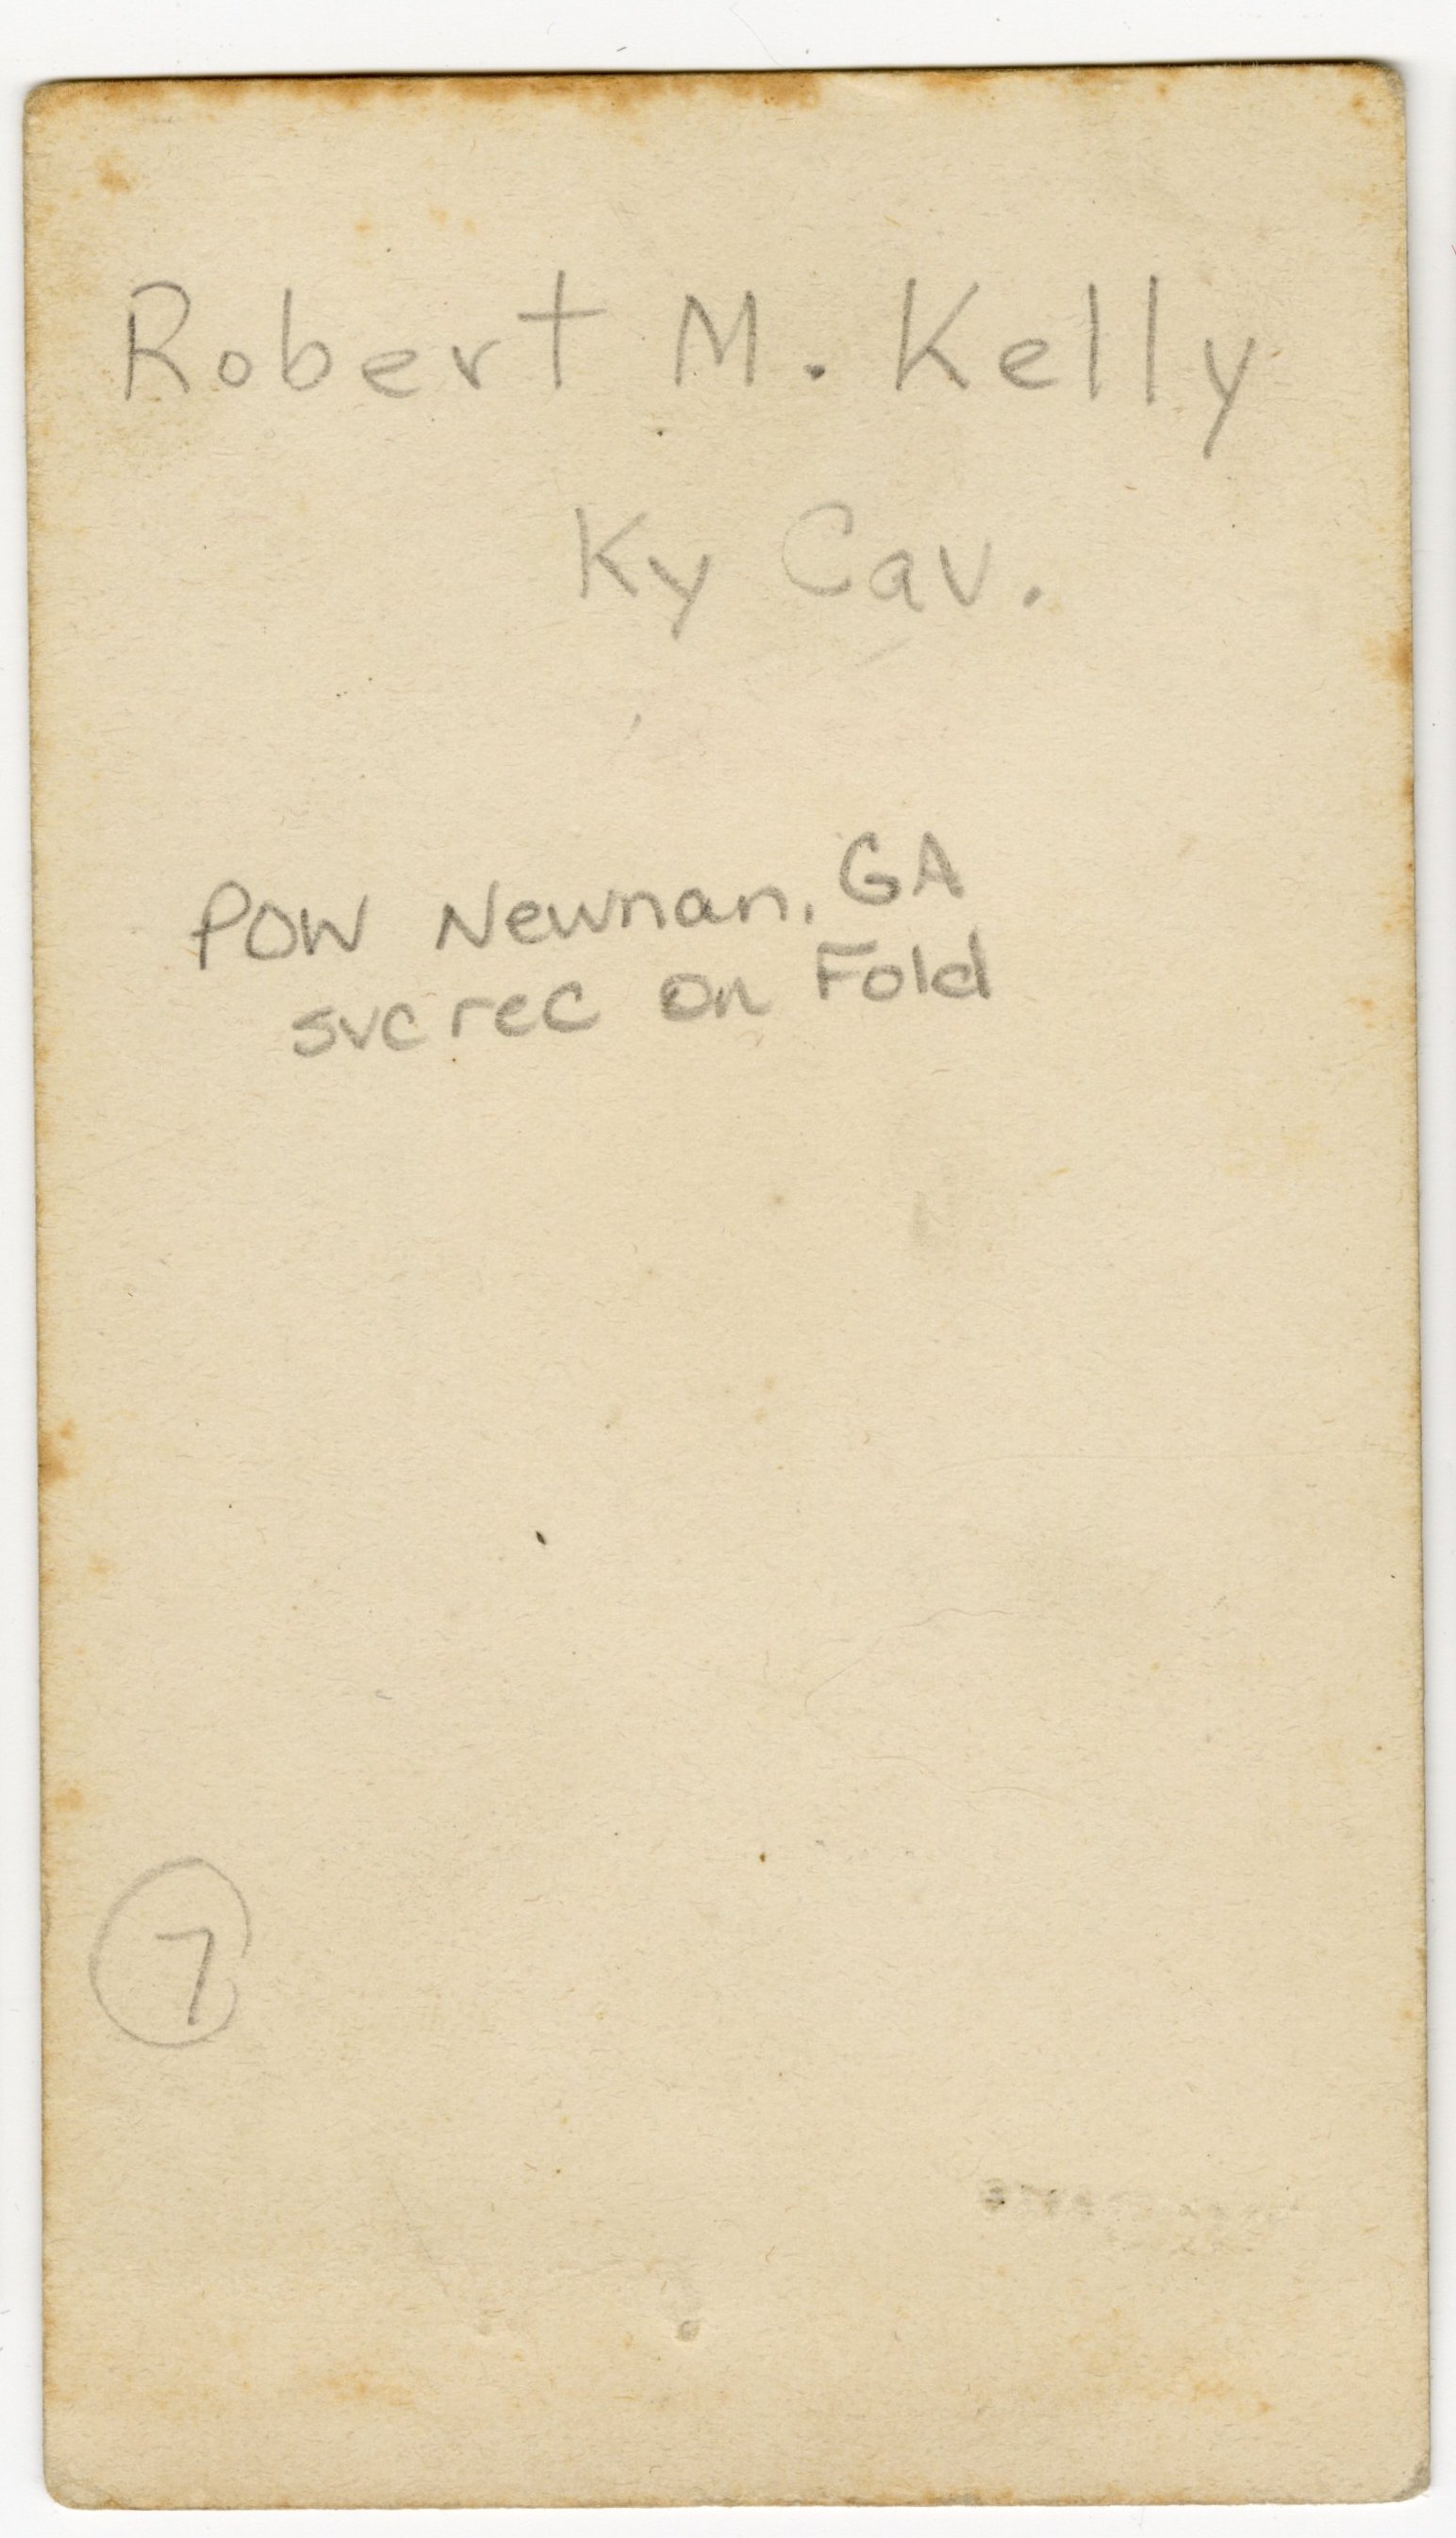 Robert M. Kelly
Ky Cav.
POW Newnan, GA
svc rec on Fold
7